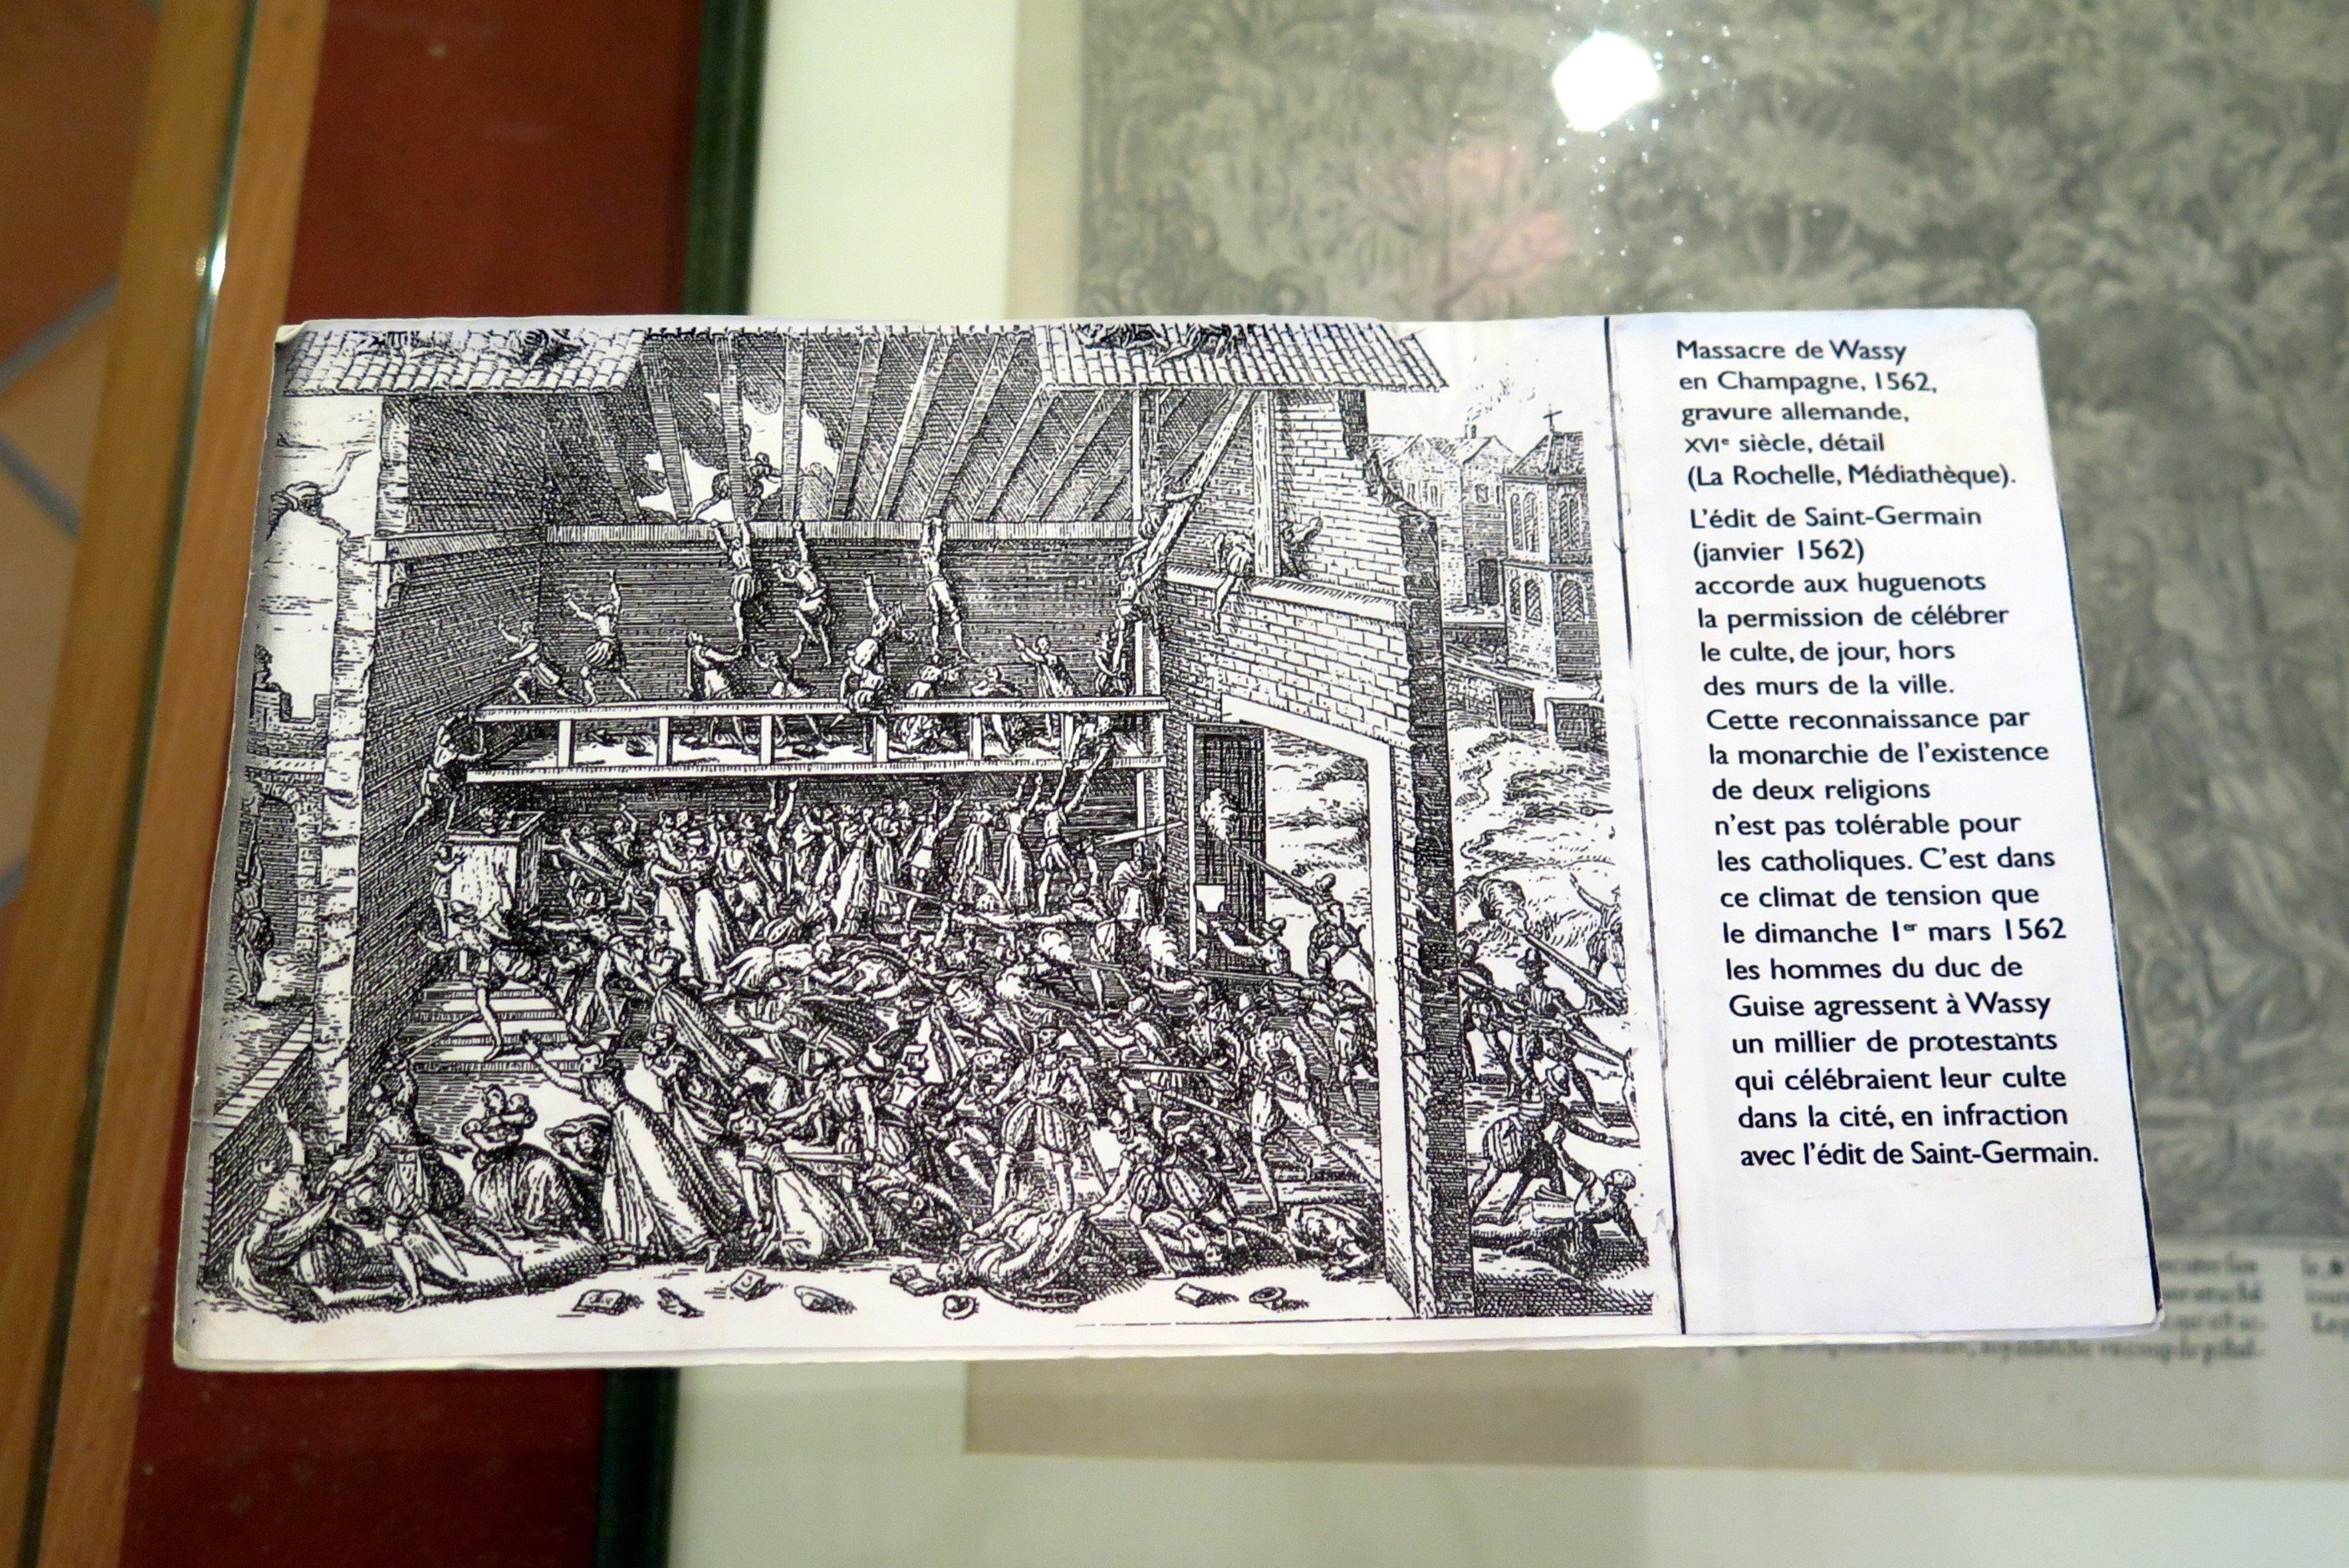 Massacre de Wassy
en Champagne, 1562,
gravure allemande,
XVIe siècle, détail
(La Rochelle, Médiathèque).
L'édit de Saint-Germain
(janvier 1562)
accorde aux huguenots
la permission de célébrer
le culte, de jour, hors
des murs de la ville.
Cette reconnaissance par
la monarchie de l'existence
de deux religions
n'est pas tolérable pour
les catholiques. C'est dans
ce climat de tension que
le dimanche 1er mars 1562
les hommes du duc de
Guise agressent à Wassy
un millier de protestants
qui célébraient leur culte
dans la cité, en infraction
avec l'édit de Saint-Germain.